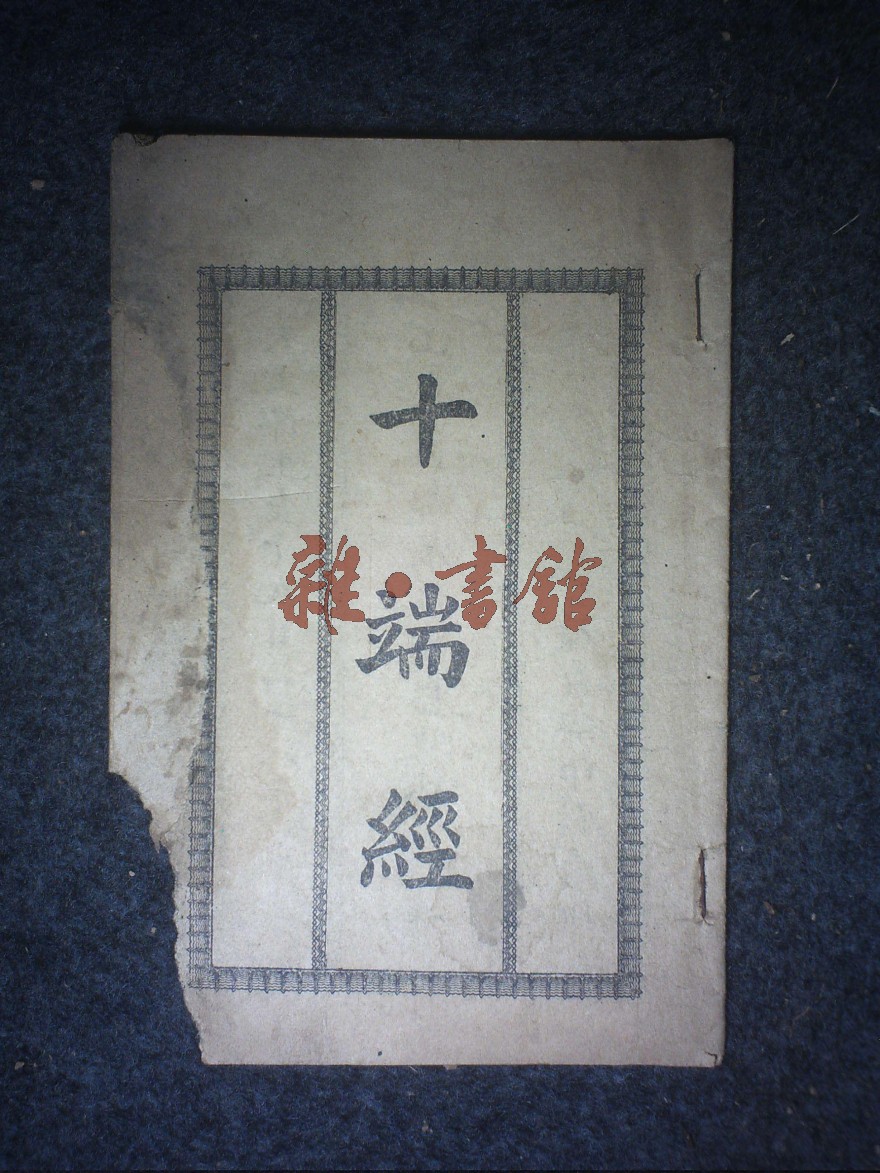 十端經
雜·書館